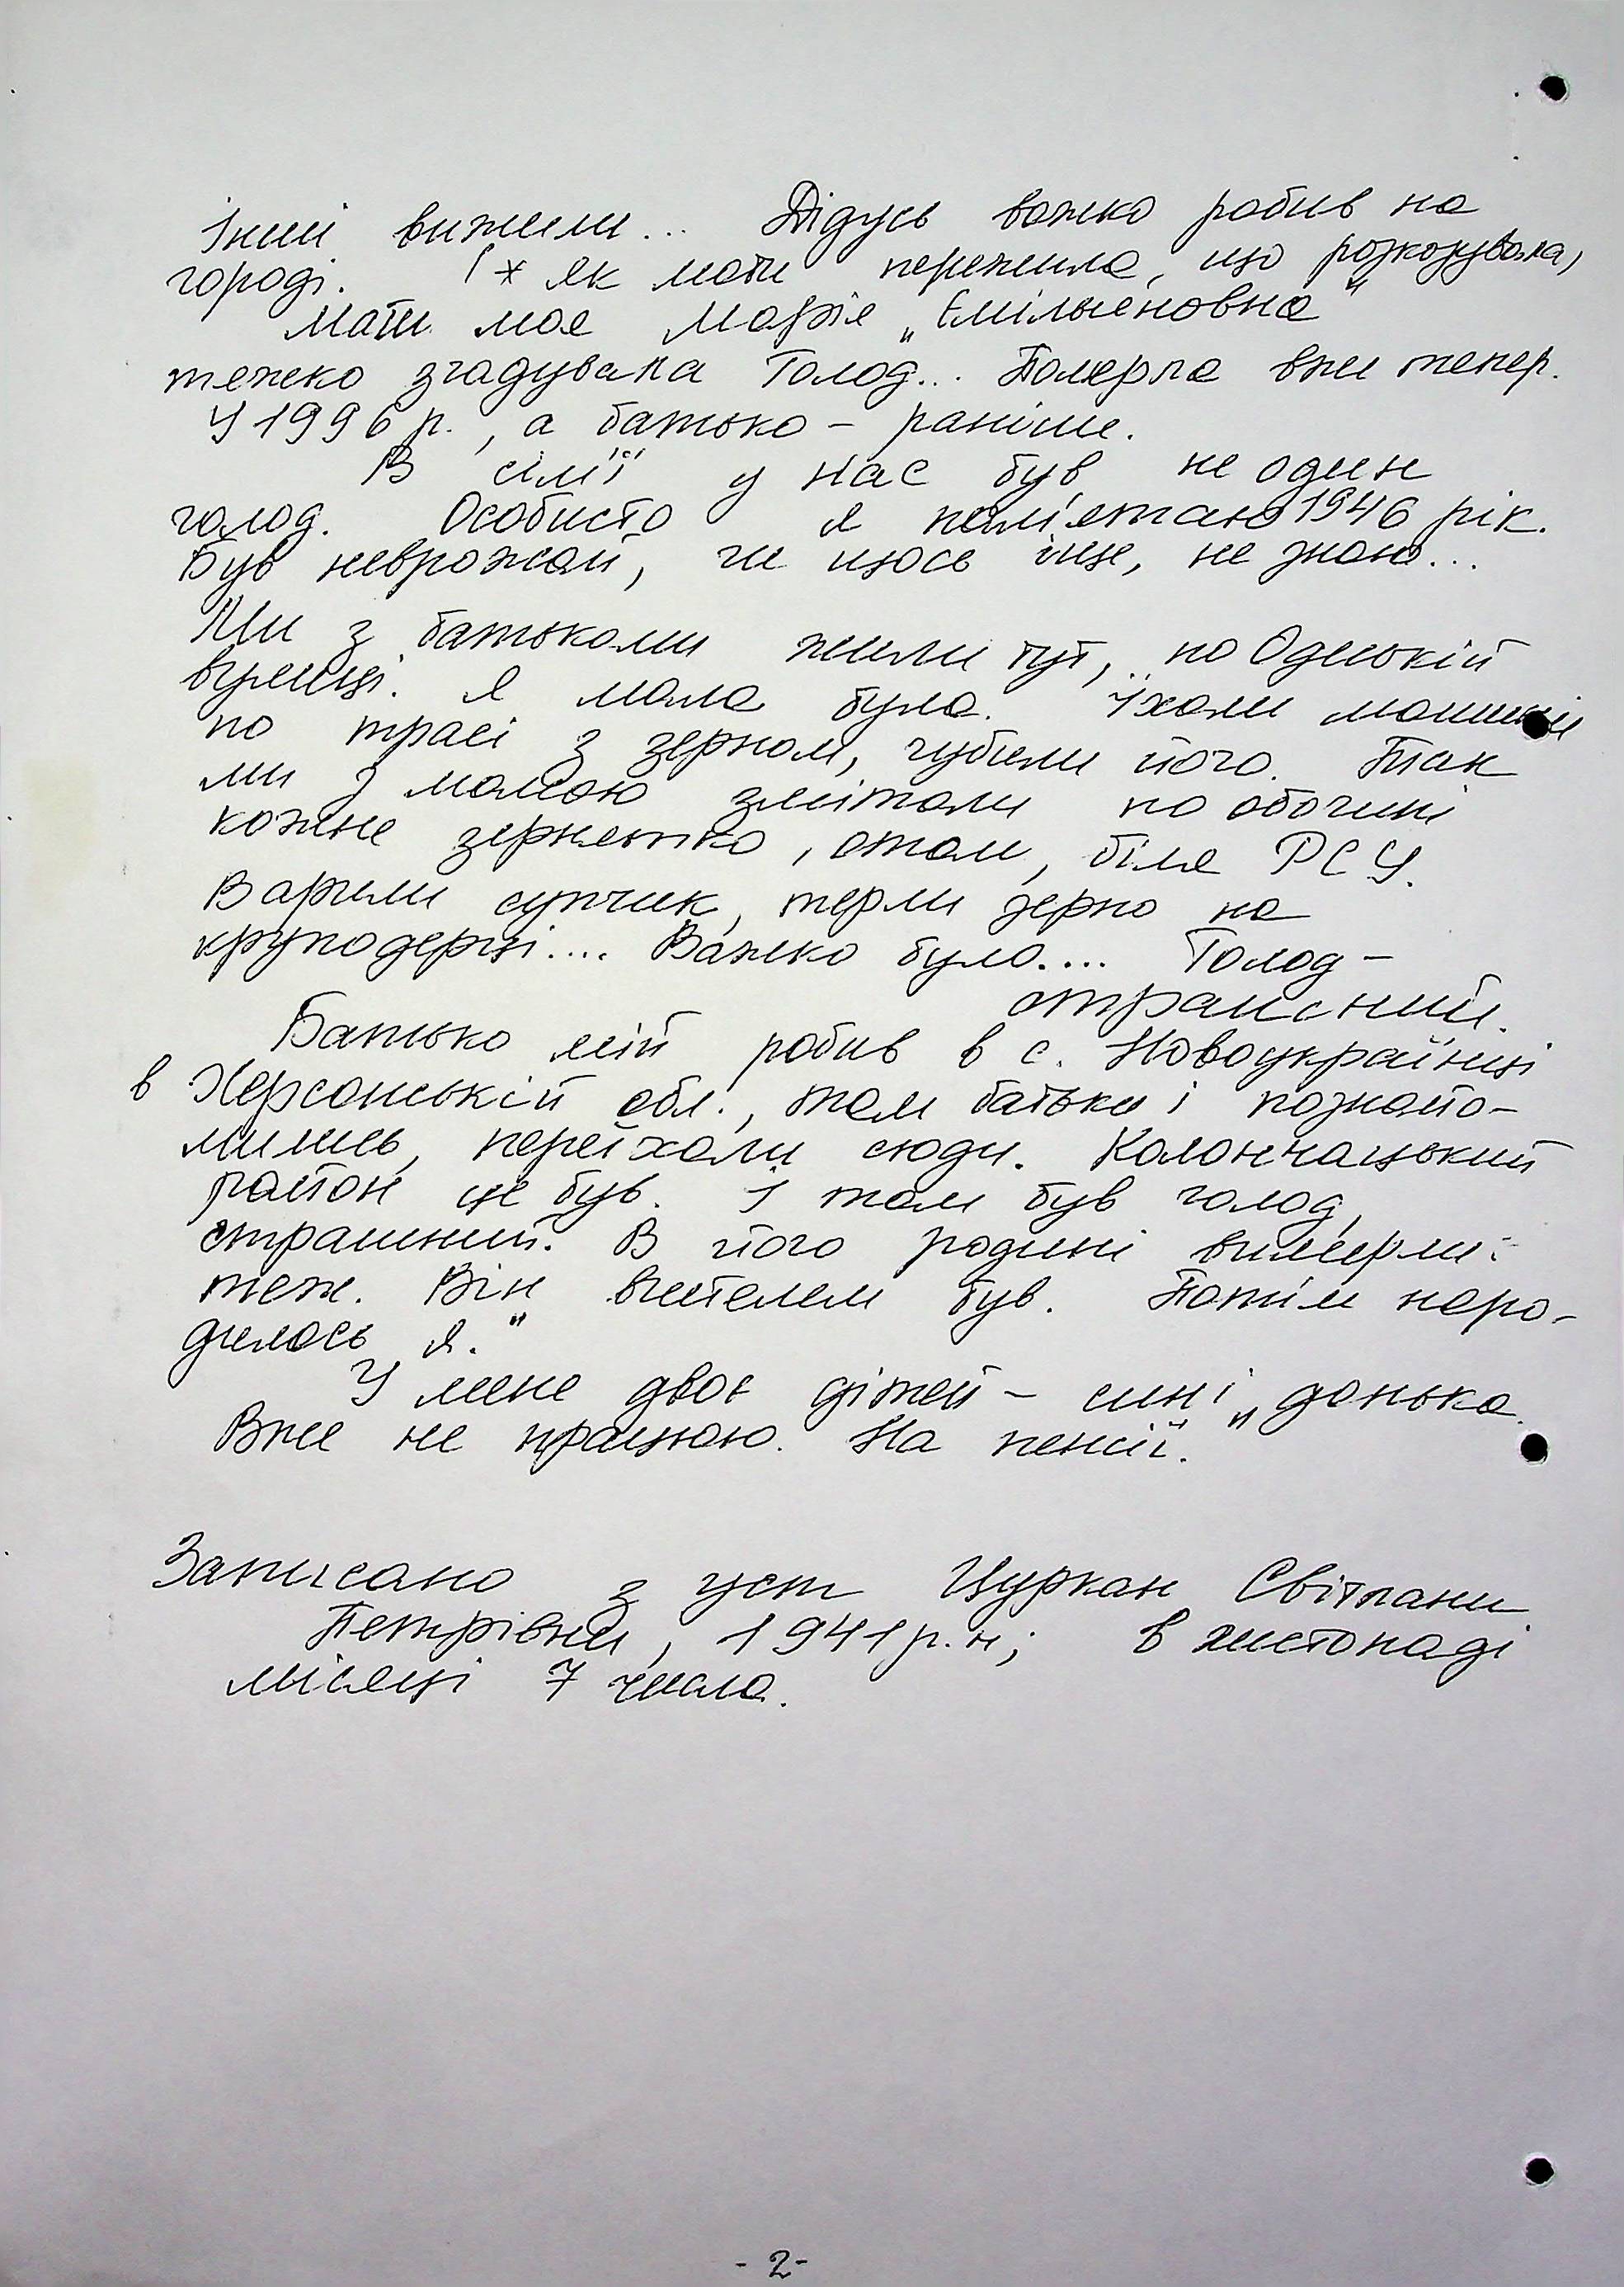 Інші вижили... Дідусь важко робив на
городі. (* як мати пережила, що розказувала)
Мати моя Марія „Ємільяновна"
тяжко згадувала Голод... Померла вже тепер.
У 1996 р., а батько – раніше.
В сім'ї у нас був не один
голод. Особисто я пам'ятаю 1946 рік.
Був неврожай, чи щось інше, не знаю...
Ми з батьками жили тут, по Одеській
вулиці. Я мала була. Їхали машини
по трасі з зерном, губили його. Так
ми з мамою змітали по обочині
кожне зернятко, отам, біля РСУ.
Варили супчик, терли зерно на
круподерці.... Важко було.... Голод –
страшний.
Батько мій робив в с. Новоукраїнці
в Херсонській обл., там батьки і познайо-
мились, переїхали сюди. Каланчацький
район це був. І там був голод,
страшний. В його родині вимерли
теж. Він вчителем був. Потім наро-
дилась я."
У мене двоє дітей – син і донька.
Вже не працюю. На пенсії."
Записано з уст Цуркан Світлани
Петрівни, 1941 р.н; в листопаді
місяці 7 числа.
- 2 -